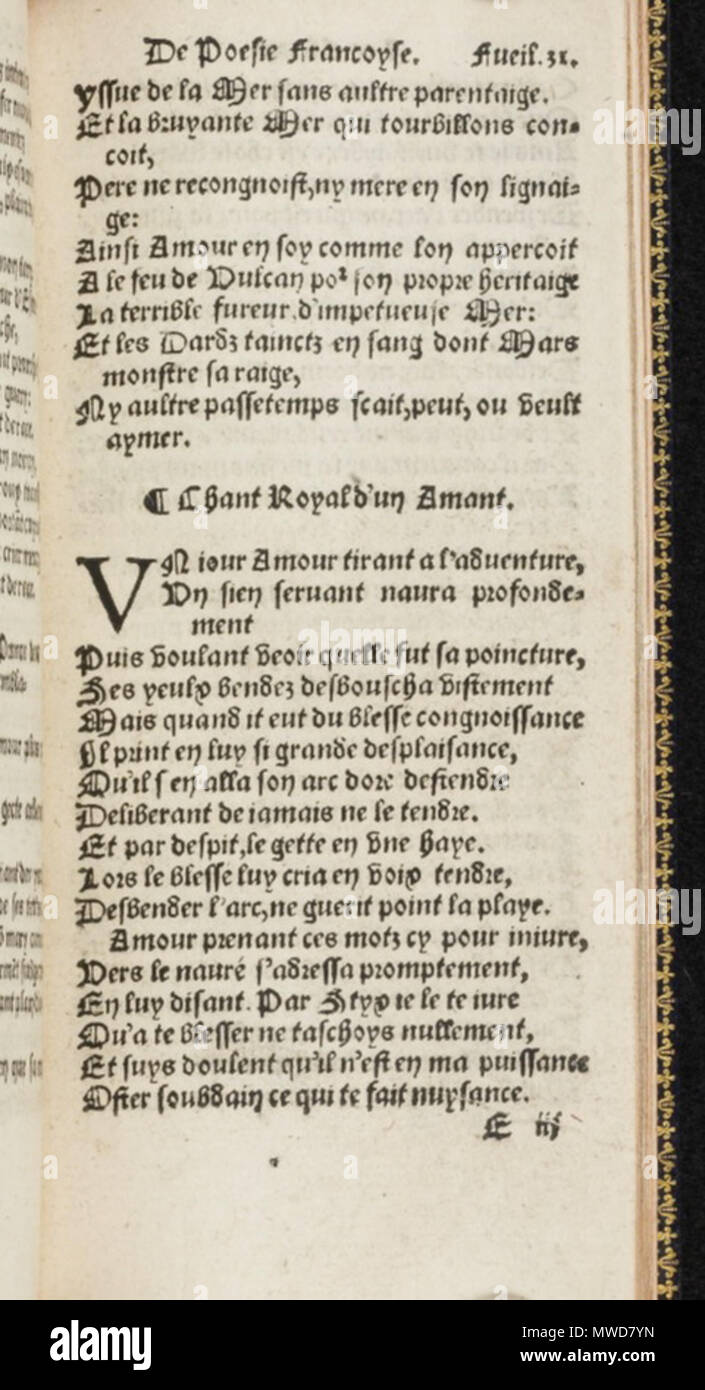 De Poesie Francoyse. Fueil.31.
yssue de la Mer sans aultre parentaige.
Et la bruyante Mer qui tourbillons con-
coit,
Pere ne recongnoist, ny mere en son lignai-
ge:
Ainsi Amour en soy comme lon appercoit
A le feu de Vulcan poꝰ son propre heritaige
La terrible fureur d'impetueuse Mer:
Et les Dardz tainctz en sang dont Mars
monstre sa raige,
Ny aultre passetemps scait, peut, ou veult
aymer.
¶ Chant Royal d'un Amant.
VN iour Amour tirant a l'aduenture,
Vn sien seruant naura profonde-
ment
Puis voulant veoir quelle fut sa poincture,
Ses yeulx bendez desbouscha vistement
Mais quand il eut du blesse congnoissance
Il print en luy si grande desplaisance,
Qu'il s'en alla son arc dore destendre
Deliberant de iamais ne le tendre.
Et par despit, le gette en vne haye.
Lors le blesse luy cria en voix tendre,
Desbender l'arc, ne guerit point la playe.
Amour prenant ces motz cy pour iniure,
Vers le nauré s'adressa promptement,
En luy disant. Par Styx ie le te iure
Qu'a te blesser ne taschoys nullement,
Et suys doulent qu'il n'est en ma puissance
Oster soubdain ce qui te fait nuysance.
E iij
alamy
Image ID: MWD7YN
www.alamy.com